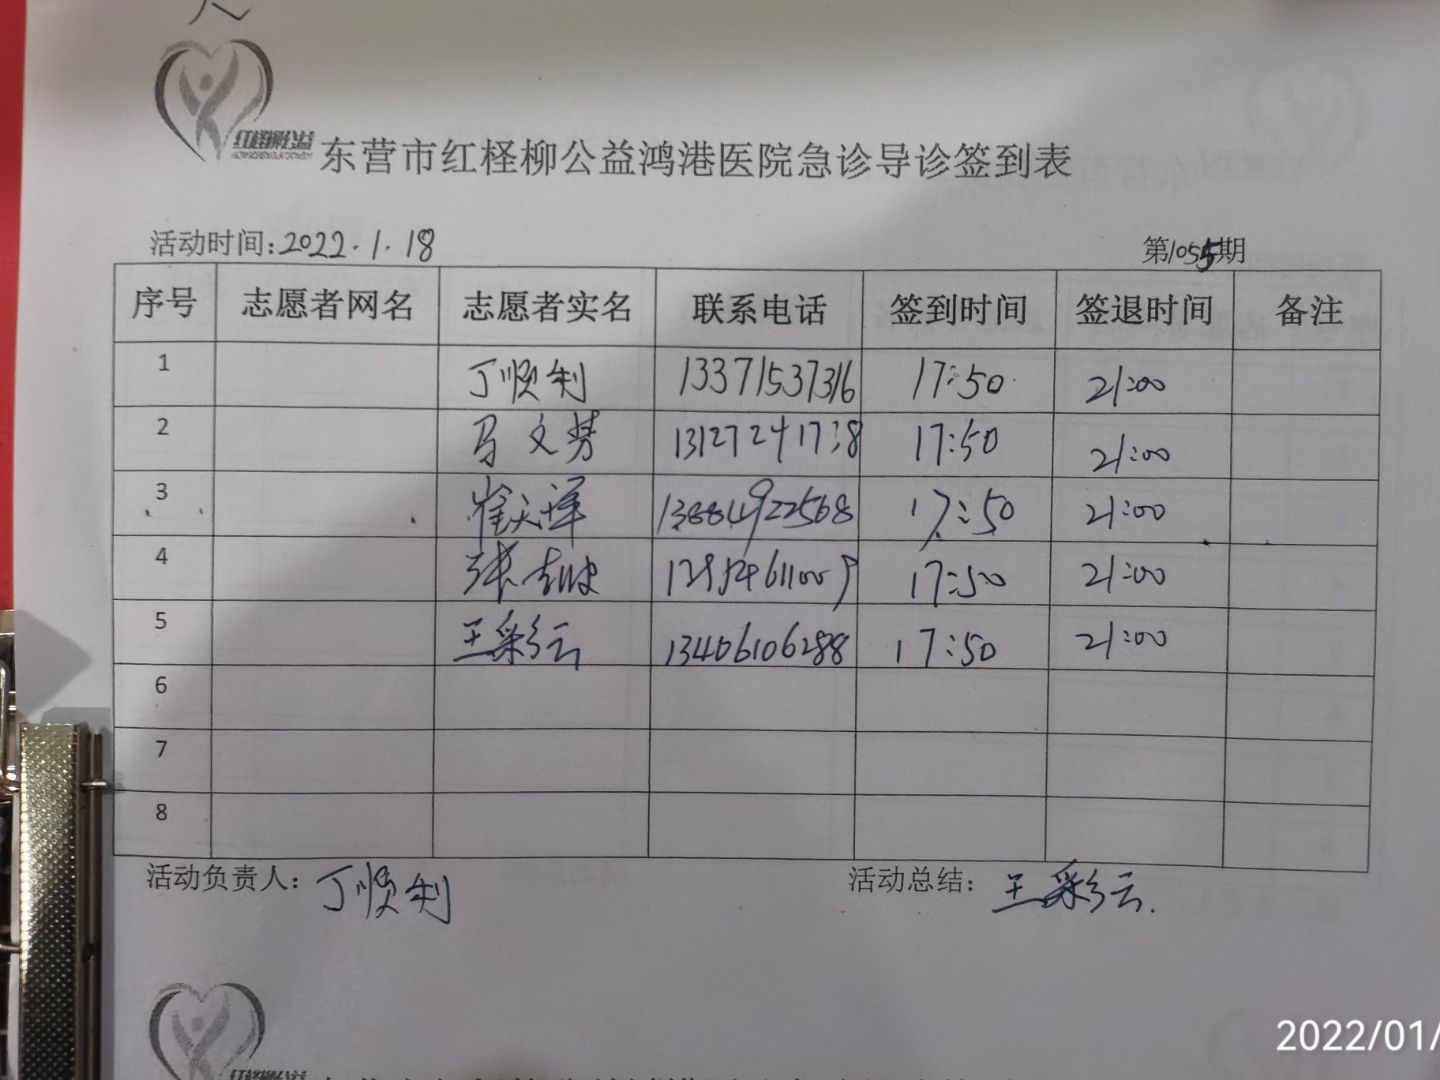 红柽柳公益
东营市红柽柳公益鸿港医院急诊导诊签到表
活动时间:2022.1.18 第1055期
序号 志愿者网名 志愿者实名 联系电话 签到时间 签退时间 备注
1 丁顺利 13371537316 17:50 21:00
2 马文梦 13127241738 17:50 21:00
3 崔天泽 13884922568 17:50 21:00
4 张 17:50 21:00
5 王彩云 13406106288 17:50 21:00
6
7
8
活动负责人:丁顺利 活动总结:王彩云.
红柽柳公益
2022/01/